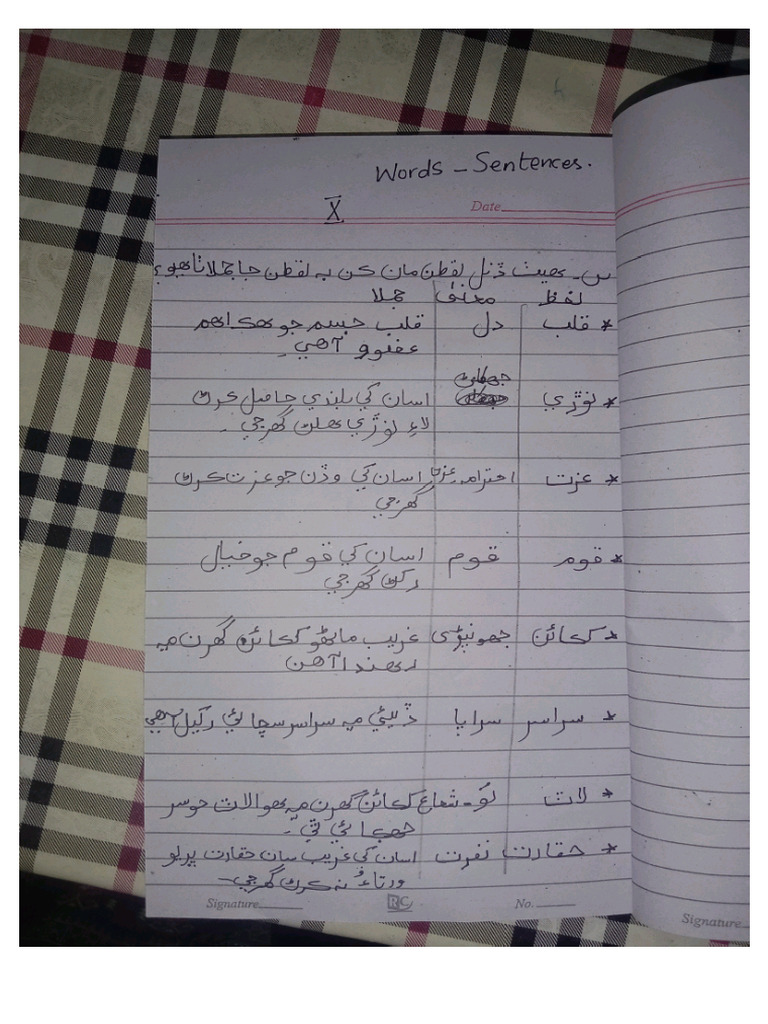 Words - Sentences.
X
Date
س۔ هيٺ ڏنل لفظن مان ڪن به لفظن جا جملا ٺاهيو؟
لفظ معنيٰ جملا
* قلب دل قلب جسم جو هڪ اهم
عضوو آهي۔
* نوڙي اسان کي بلندي حاصل ڪرڻ
لاءِ نوڙي هلڻ گهرجي۔
* عزت احترام۔عزت اسان کي وڏن جو عزت ڪرڻ
گهرجي
* قوم قوم اسان کي قوم جو خيال
رکڻ گهرجي
* ڪکائن جهونپڙی غريب ماڻهو ڪکائن گهرن ۾
رهندا آهن
* سراسر سراپا ۾ سراسر سچائي رکيل
* لاٽ لوُ۔شعاع ڪکائن گهرن ۾
* حقارت نفرت اسان کي غريب سان حقارت ڀريو
ورتاءُ نه ڪرڻ گهرجي۔
Signature RC No.
Signature